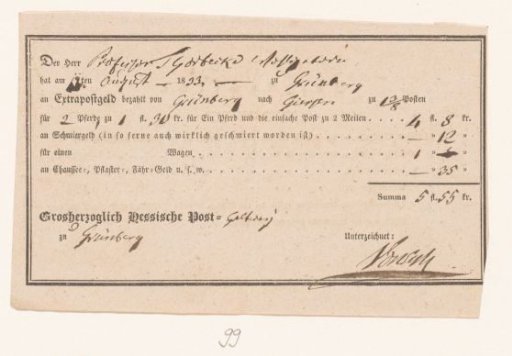 Der Herr Professor
hat am 12ten August 1833 zu Grünberg
an Extrapostgeld bezahlt von Grünberg nach zu Posten
für 2 Pferde zu 1 fl. 30 kr. für Ein Pferd und die einfache Post zu 2 Meilen 4 fl. 8 kr.
an Schmiergeld (in so ferne auch wirklich geschmiert worden ist) — " 12 "
für einen Wagen
an Chaussee-, Pflaster-, Fähr-Geld u. s. w. — " 35 "
Summa 5 fl. 55 kr.
Grosherzoglich Hessische Post-
zu Grünberg
Unterzeichnet:
99